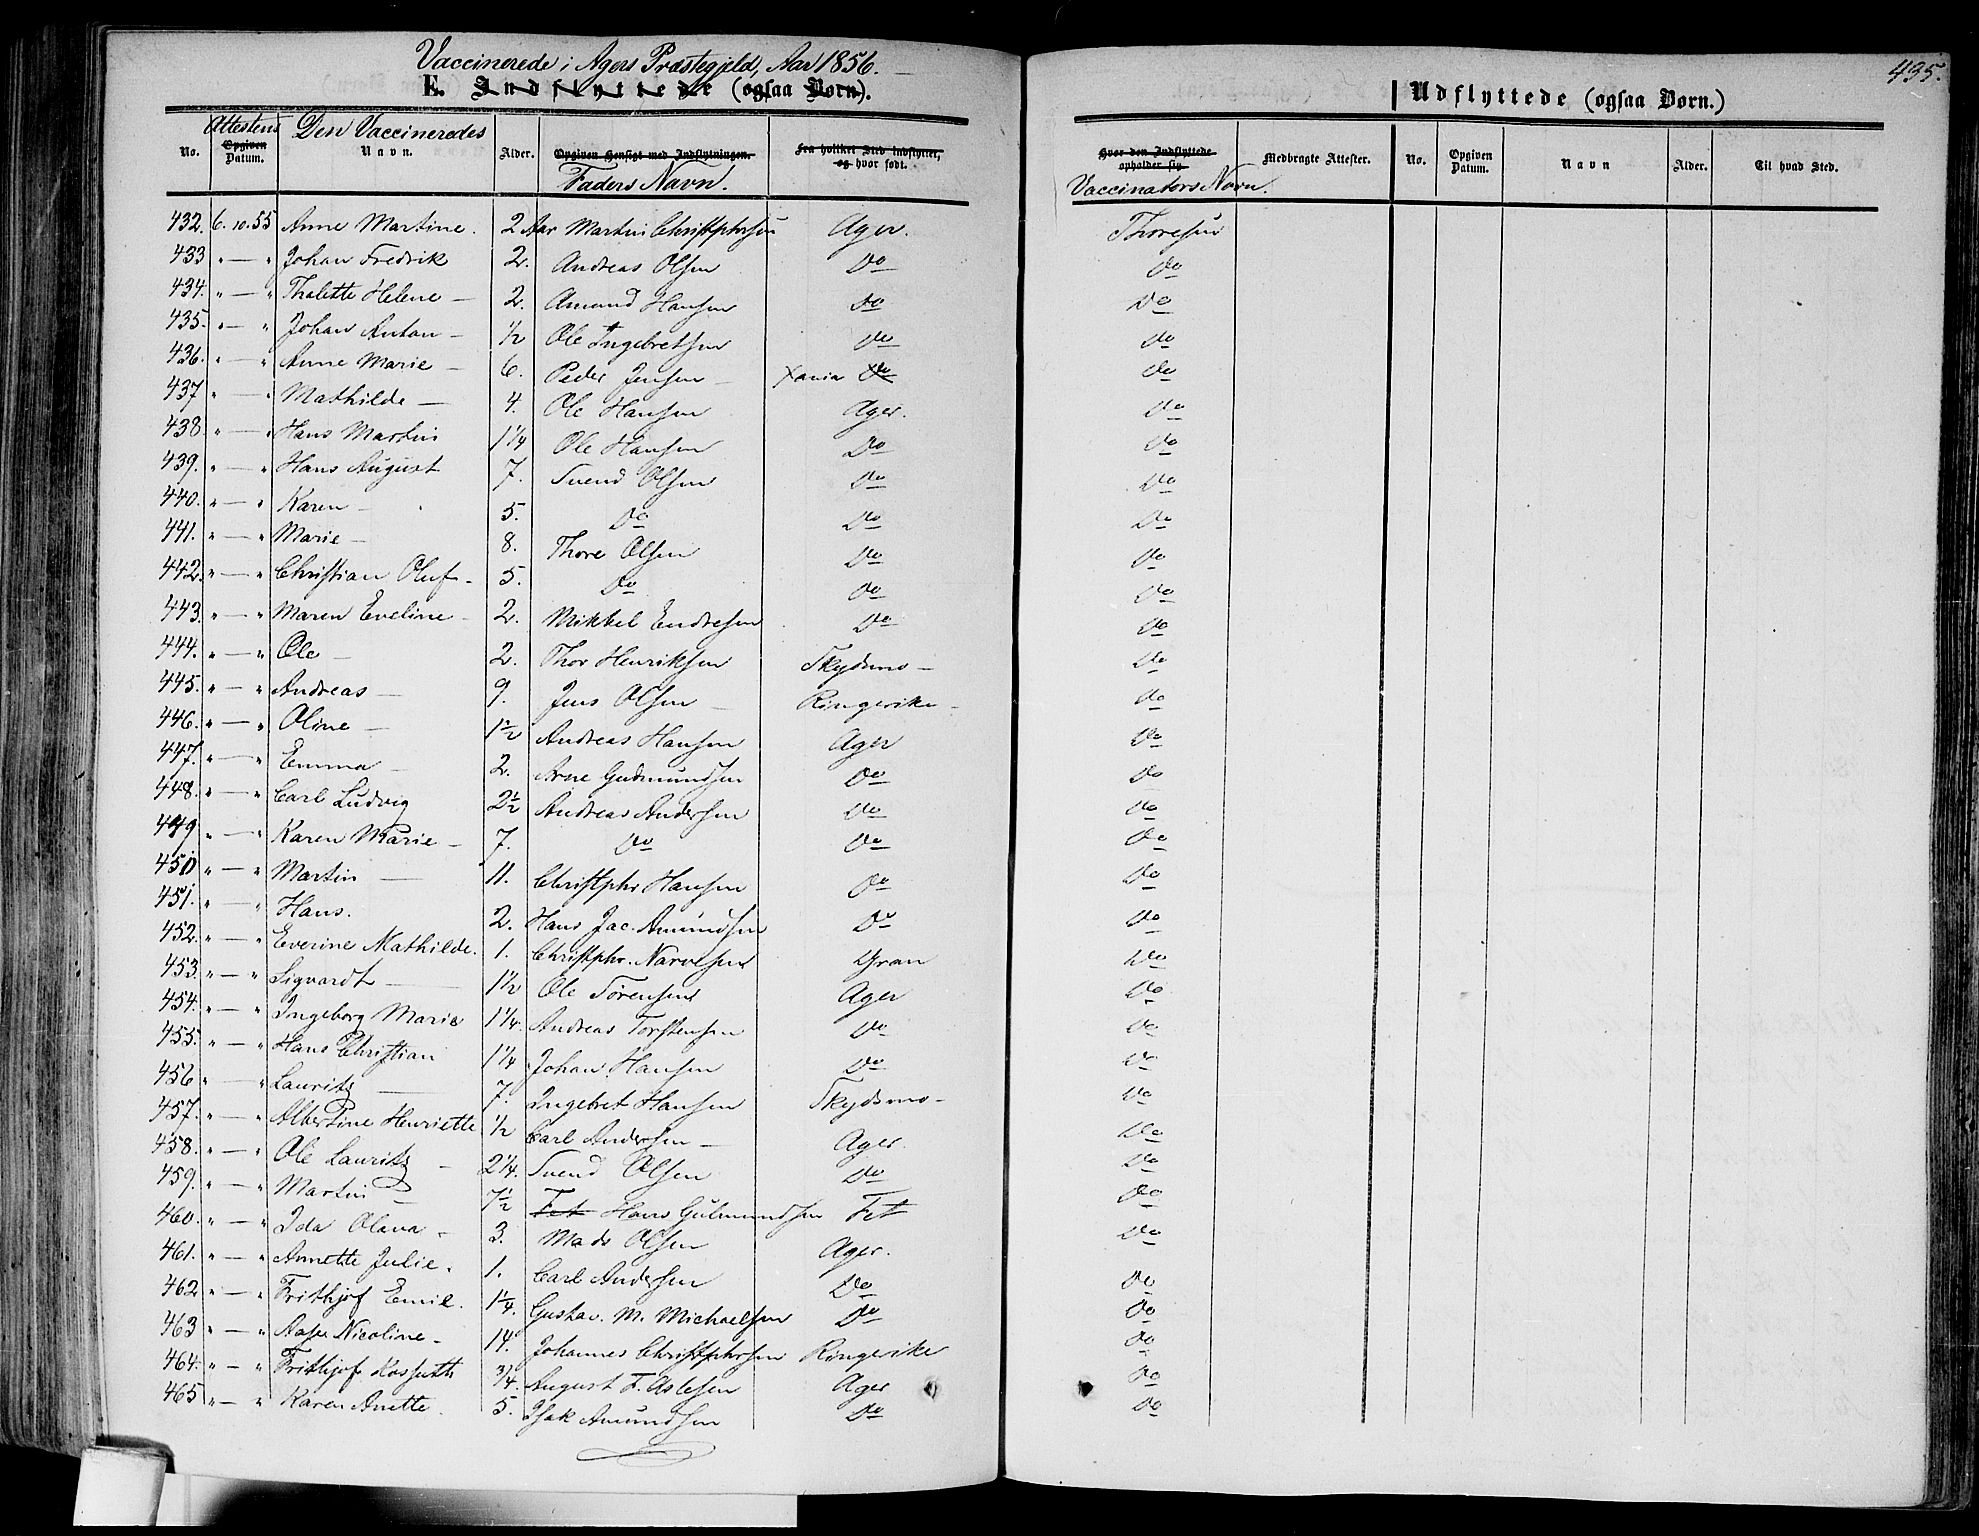 Vaccinerede i Agers Præstegjeld, Aar 1856.
435.
E. Indflyttede (ogsaa Børn).
Udflyttede (ogsaa Børn.)
No. Attestens Opgiven Datum. Den Vaccineredes Navn. Alder. Opgiven Hensigt med Indflytningen. Faders Navn. Fra hvilket Sted indflyttet, og hvor født. Hvor den Indflyttede opholder sig. Vaccinators Navn. Medbragte Attester. No. Opgiven Datum. Navn Alder. Til hvad Sted.
432. 6. 10. 55 Anne Martine. 2 Aar Martin Christphersen Ager. Thoresen
433 " — " Johan Fredrik 2. Andreas Olsen Do Do
434. " — " Thalette Helene — 2. Amund Hansen Do Do
435. " — " Johan Anton — 1/2 Ole Ingebretsen Do Do
436. " — " Anne Marie — 6. Peder Jensen — Xania Do Do
437 " — " Mathilde — 4. Ole Hansen Ager. Do
438. " — " Hans Martin 1 1/4 Ole Hansen Do Do
439. " — " Hans August 7. Svend Olsen Do Do
440. " — " Karen — 5. Do Do Do
441. " — " Marie — 8. Thore Olsen Do Do
442. " — " Christian Oluf — 5. Do Do Do
443. " — " Maren Eveline — 2. Mikkel Endresen Do Do
444. " — " Ole — 2. Thor Henriksen Skydsmo — Do
445. " — " Andreas — 9. Jens Olsen — Ringerike — Do
446. " — " Oline — 1 1/2 Andreas Hansen Ager Do
447. " — " Emma — 2. Arne Gudmundsen Do Do
448. " — " Carl Ludvig 2 1/2 Andreas Andersen Do Do
449 " — " Karen Marie — 7. Do Do Do
450 " — " Martin — 11. Christphr Hansen Do Do
451. " — " Hans. 2. Hans Jac. Amundsen Do Do
452. " — " Everine Mathilde. 1. Christphr. Narvesen Gran Do
453. " — " Sigvardt — 1 1/2 Ole Sørensen Ager Do
454. " — " Ingeborg Marie 1 1/4. Andreas Torstensen Do Do
455. " — " Hans Christian 1 1/4 Johan Hansen Do Do
456 " — " Lauritz — 7. Ingebret Hansen Skydsmo — Do
457. " — " Albertine Henriette 1/2 Carl Andersen — Ager. Do
458. " — " Ole Lauritz — 2 1/4. Svend Olsen Do Do
459. " — " Martin — 7 1/2 Fet Hans Gulmundsen Fet Do
460. " — " Ida Olava — 3. Mads Olsen Ager. Do
461. " — " Annette Julie. 1. Carl Andersen Do Do
462 " — " Frithjof Emil. 1 1/4. Gustav. M. Michaelsen Do Do
463 " — " Aase Nicoline — 14. Johannes Christphersen Ringerike Do
464. " — " Frithjof Kossuth 3/4. August F. Aslesen Ager Do
465 " — " Karen Anette. 5. Isak Amundsen Do Do